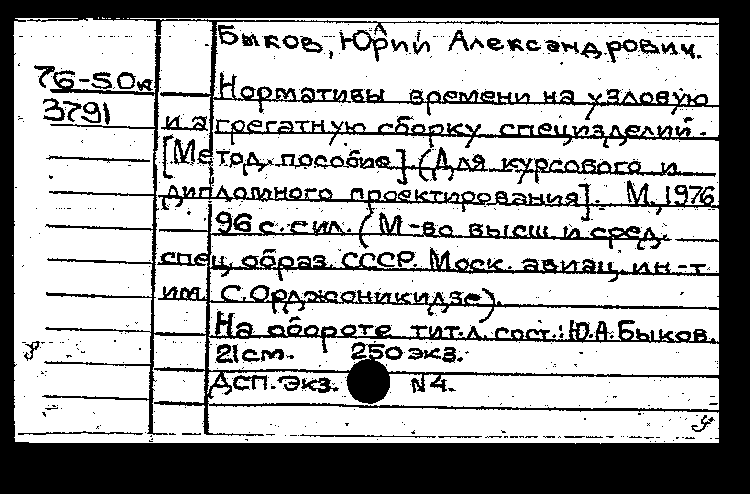 Быков, Юрий Александрович.
76-50к
3791
Нормативы времени на узловую
и агрегатную сборку специзделий.
[Метод. пособие]. (Для курсового и
дипломного проектирования]. М., 1976
96 с. с ил. (М-во высш. и сред.
спец. образ. СССР. Моск. авиац. ин-т
им. С. Орджоникидзе).
На обороте тит. л. сост.: Ю.А. Быков.
21 см. 250 экз.
ДСП. Экз. N 4.